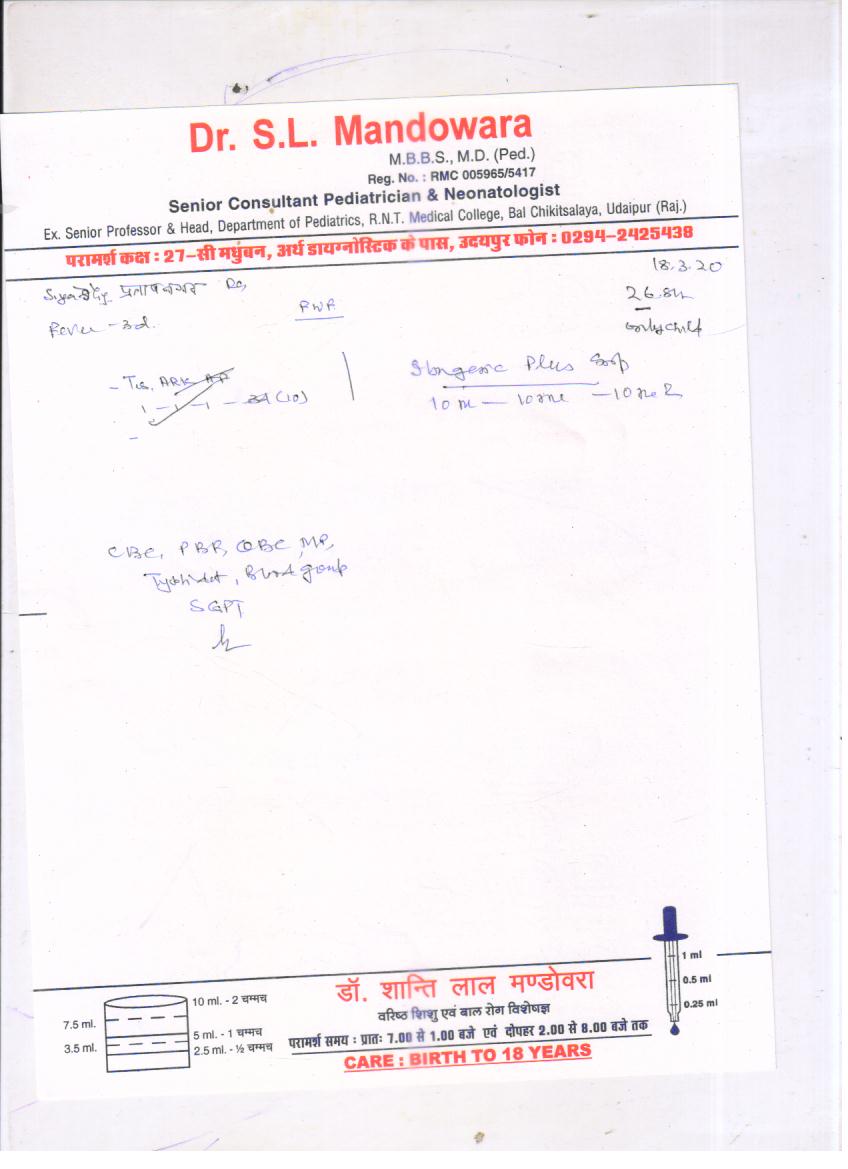 Dr. S.L. Mandowara
M.B.B.S., M.D. (Ped.)
Reg. No. : RMC 005965/5417
Senior Consultant Pediatrician & Neonatologist
Ex. Senior Professor & Head, Department of Pediatrics, R.N.T. Medical College, Bal Chikitsalaya, Udaipur (Raj.)
परामर्श कक्ष : 27-सी मधुवन, अर्थ डायग्नोस्टिक के पास, उदयपुर फोन : 0294-2425438
18.3.20
प्रतापनगर
Fever - 3d.
only child
1 - 1 - 1 - (10)
Plus
10 ml - 10 ml - 10 ml
CBC, PBF, QBC, MP,
Typhidot, Blood group
SGPT
1 ml
0.5 ml
0.25 ml
10 ml. - 2 चम्मच
7.5 ml.
5 ml. - 1 चम्मच
3.5 ml.
2.5 ml. - ½ चम्मच
डॉ. शान्ति लाल मण्डोवरा
वरिष्ठ शिशु एवं बाल रोग विशेषज्ञ
परामर्श समय : प्रातः 7.00 से 1.00 बजे एवं दोपहर 2.00 से 8.00 बजे तक
CARE : BIRTH TO 18 YEARS